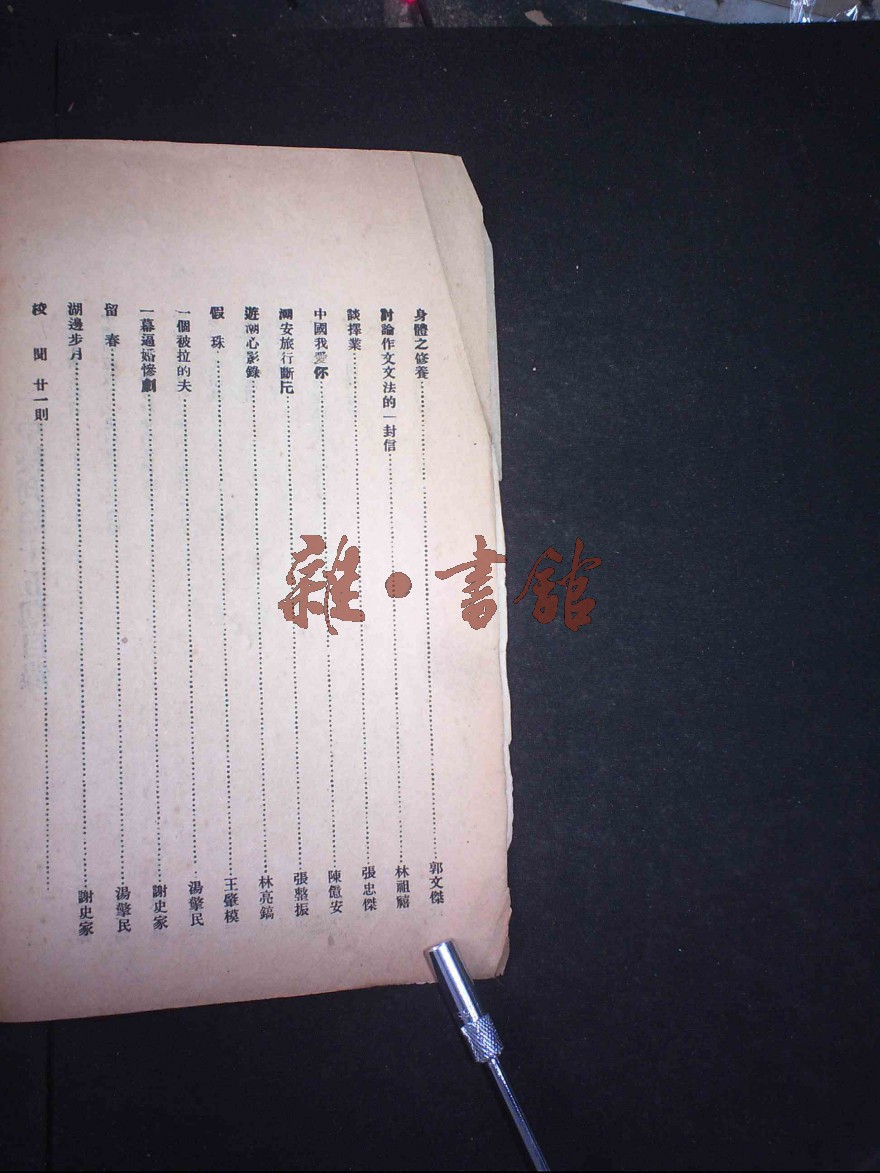 身體之修養……郭文傑
討論作文文法的一封信……林祖
談擇業……張忠傑
中國我愛你……陳億安
湖安旅行斷片……張整振
遊湖心影錄……林亮鎬
假珠……王肇模
一個被拉的夫……湯擎民
一幕逼婚慘劇……謝史家
留春……湯擎民
湖邊步月……謝史家
聞廿一則……
雜·書館